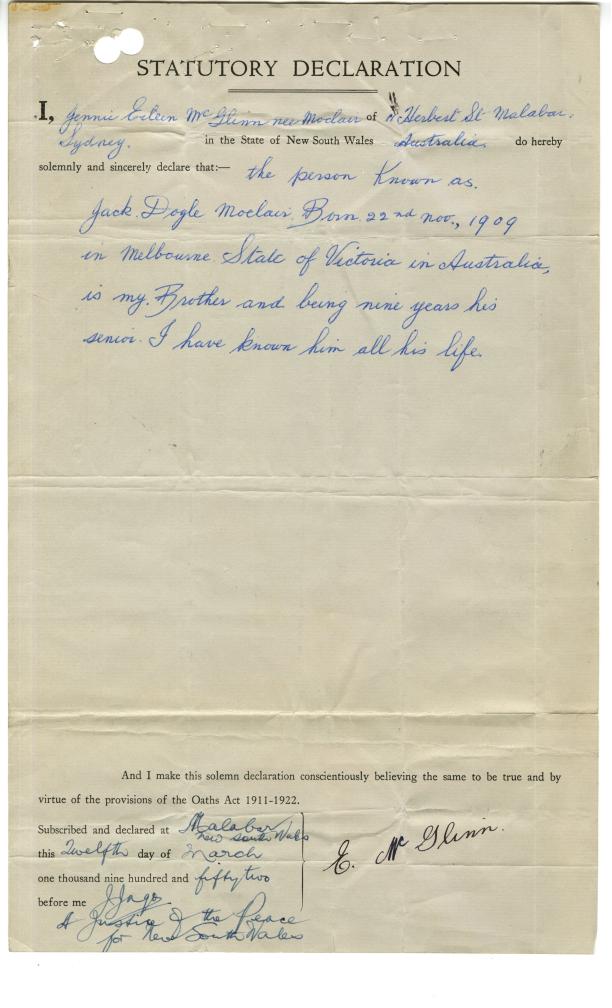 STATUTORY DECLARATION
I, Jennie Eileen McGlinn nee Moclair of Herbert St Malabar.
Sydney. in the State of New South Wales Australia. do hereby
solemnly and sincerely declare that:— the person Known as.
Jack. Dogle Moclair. Born 22nd Nov., 1909
in Melbourne. State of Victoria in Australia,
is my. Brother and being nine years his
senior. I have known him all his life.
And I make this solemn declaration conscientiously believing the same to be true and by
virtue of the provisions of the Oaths Act 1911-1922.
Subscribed and declared at Malabar
New South Wales
this Twelfth day of March
one thousand nine hundred and fifty two
E. McGlinn.
before me
A Justice of the Peace
for New South Wales